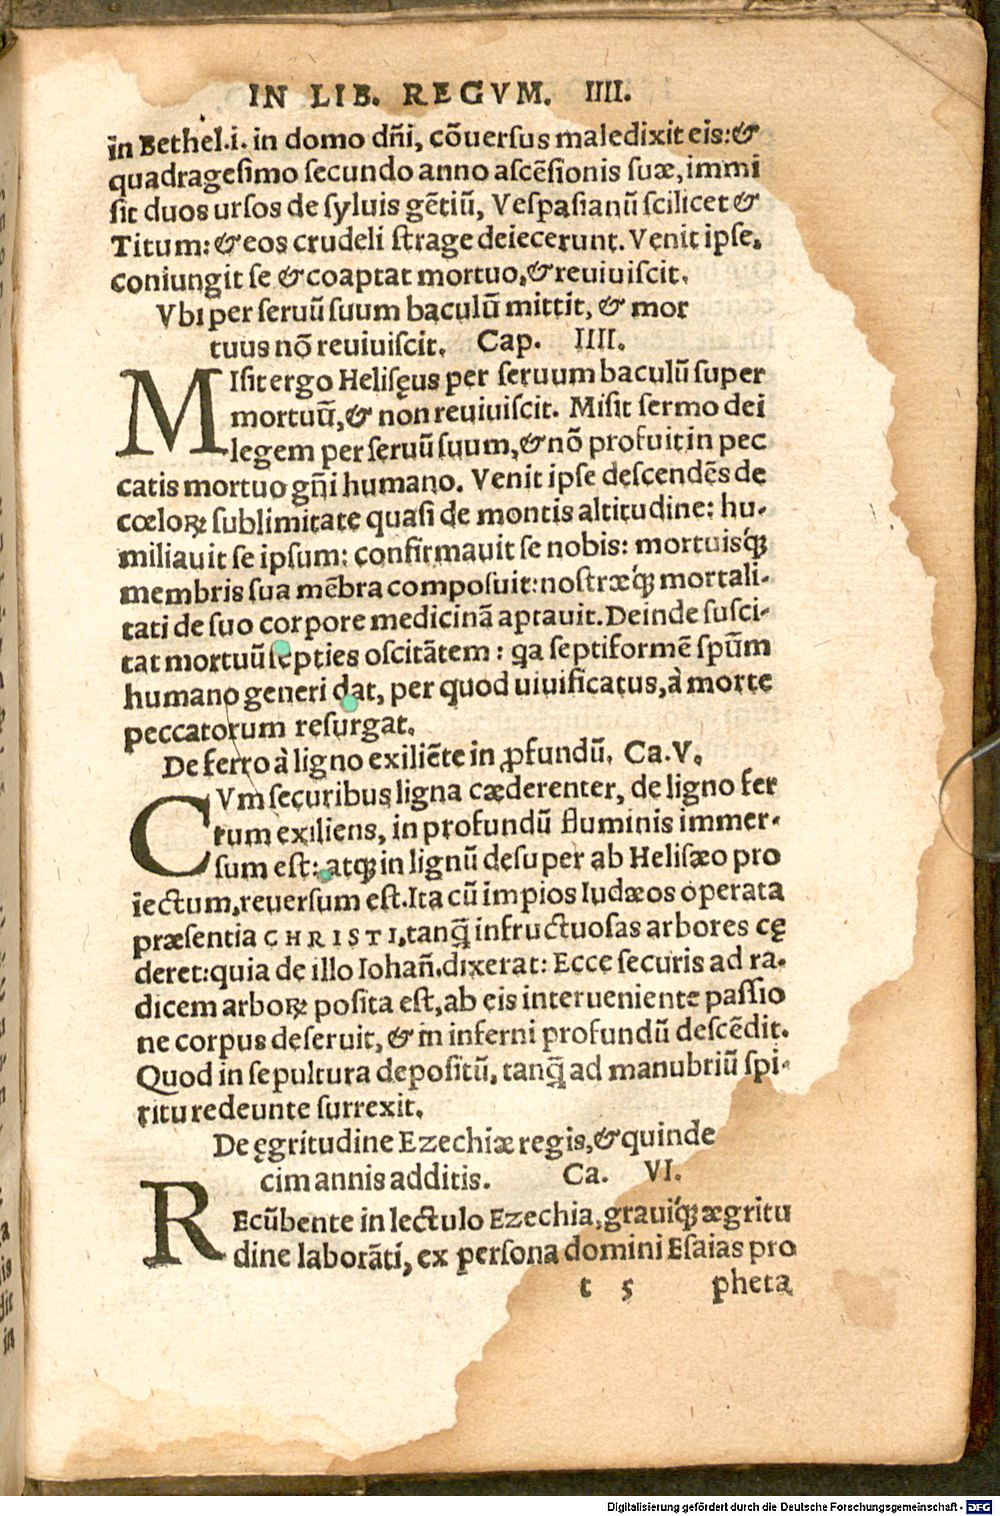 IN LIB. REGVM. IIII.
in Bethel.i. in domo dñi, cõuersus maledixit eis:&
quadragesimo secundo anno ascẽsionis suæ, immi
sit duos ursos de syluis gẽtiũ, Vespasianũ scilicet &
Titum: & eos crudeli strage deiecerunt. Venit ipse,
coniungit se & coaptat mortuo, & reuiuiscit.
Vbi per seruũ suum baculũ mittit, & mor
tuus nõ reuiuiscit. Cap. IIII.
MIsit ergo Helisęus per seruum baculũ super
mortuũ, & non reuiuiscit. Misit sermo dei
legem per seruũ suum, & nõ profuit in pec
catis mortuo gñi humano. Venit ipse descendẽs de
cœloꝝ sublimitate quasi de montis altitudine: hu-
miliauit se ipsum: confirmauit se nobis: mortuisq́;
membris sua mẽbra composuit: nostræq́; mortali-
tati de suo corpore medicinã aptauit. Deinde susci-
tat mortuũ septies oscitãtem: qa septiformẽ spũm
humano generi dat, per quod uiuificatus, à morte
peccatorum resurgat.
De ferro à ligno exiliẽte in ꝓfundũ. Ca. V.
CVm securibus ligna cæderenter, de ligno fer
rum exiliens, in profundũ fluminis immer-
sum est: atq; in lignũ desuper ab Helisæo pro
iectum, reuersum est. Ita cũ impios Iudæos operata
præsentia CHRISTI, tanq̃ infructuosas arbores cę
deret: quia de illo Iohañ. dixerat: Ecce securis ad ra-
dicem arboꝝ posita est, ab eis interueniente passio
ne corpus deseruit, & in inferni profundũ descẽdit.
Quod in sepultura depositũ, tanq̃ ad manubriũ spi-
ritu redeunte surrexit.
De ęgritudine Ezechiæ regis, & quinde
cim annis additis. Ca. VI.
REcũbente in lectulo Ezechia, grauiq́; ægritu
dine laborãti, ex persona domini Esaias pro
t 5 pheta
Digitalisierung gefördert durch die Deutsche Forschungsgemeinschaft - DFG